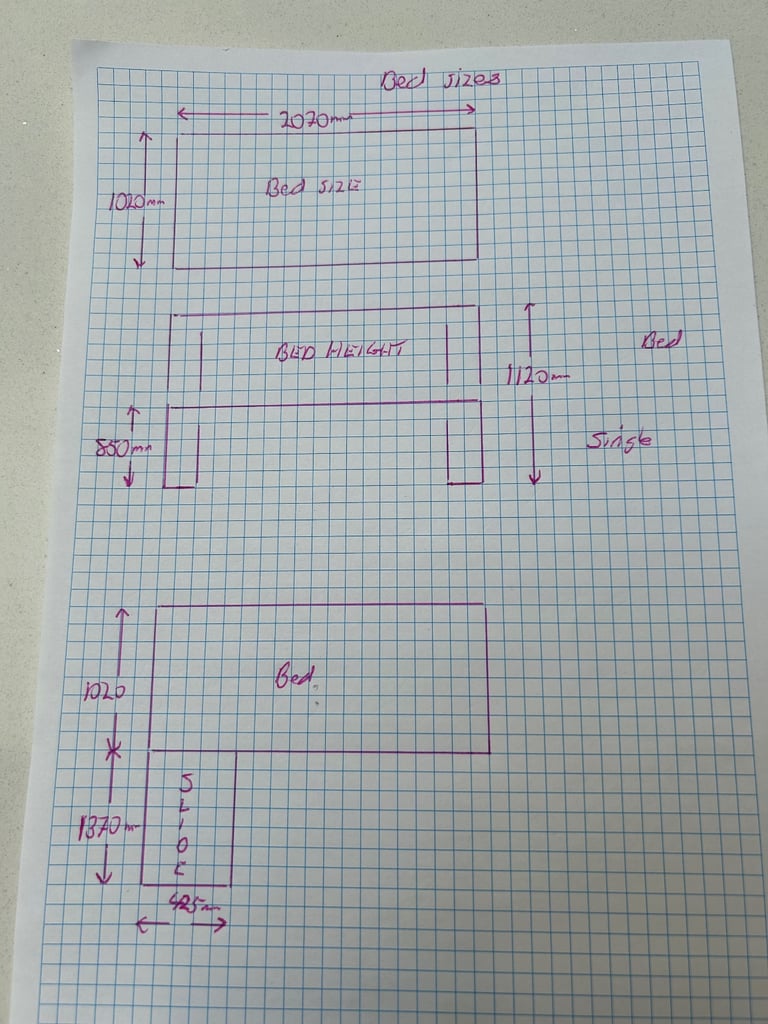 Bed sizes
2070mm
1020mm
Bed SIZE
BED HEIGHT
1120mm
Bed
850mm
Single
1020
Bed.
1370mm
SLIDE
425mm